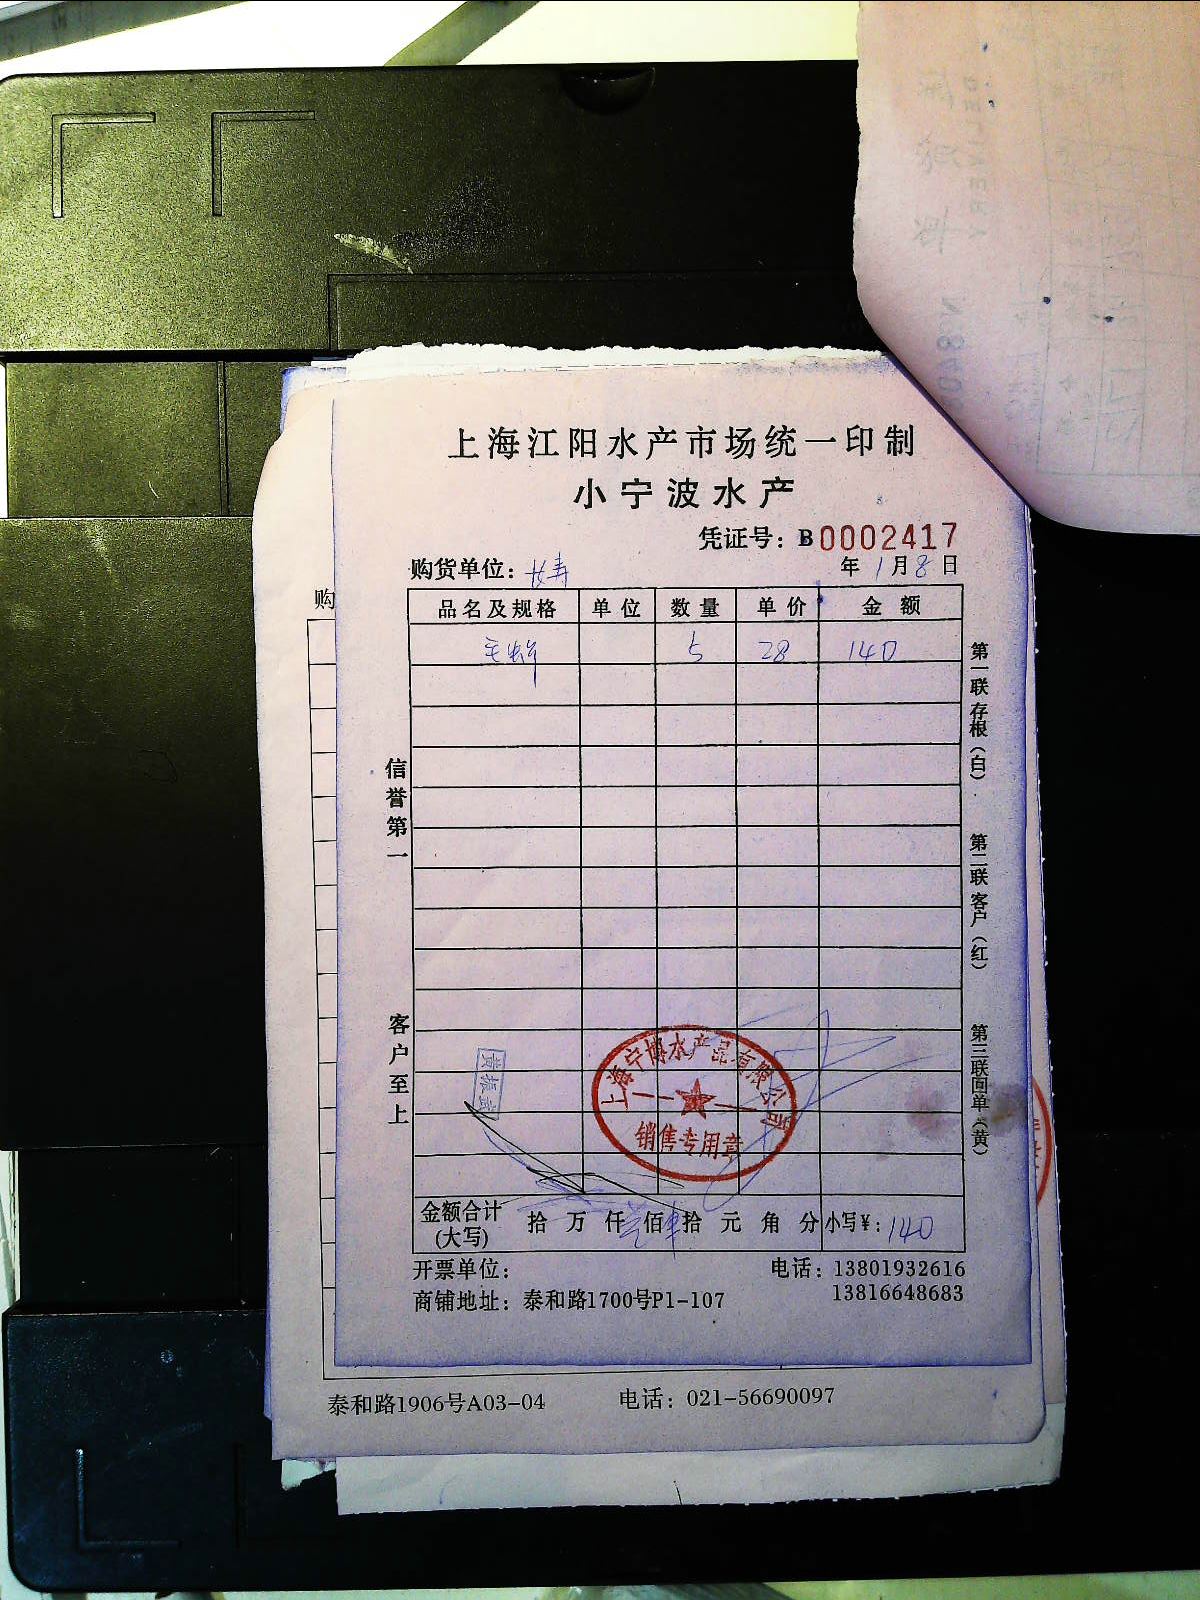 上海江阳水产市场统一印制
小宁波水产
凭证号：B0002417
购货单位：
年1月8日
品名及规格 单位 数量 单价 金额
5 28 140
信誉第一
客户至上
第一联存根（白）
第二联客户（红）
第三联回单（黄）
黄振武
上海宁博水产品有限公司
销售专用章
金额合计（大写） 拾万仟佰拾元角分 小写¥：140
开票单位：
电话：13801932616
13816648683
商铺地址：泰和路1700号P1-107
购
泰和路1906号A03-04 电话：021-56690097